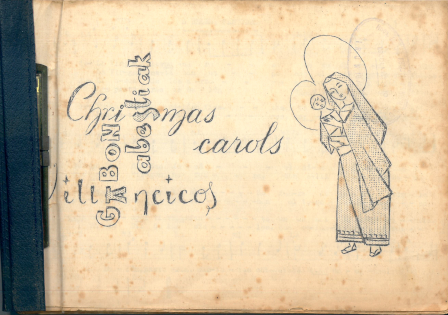 Christmas
carols
Villancicos
GABON
abestiak